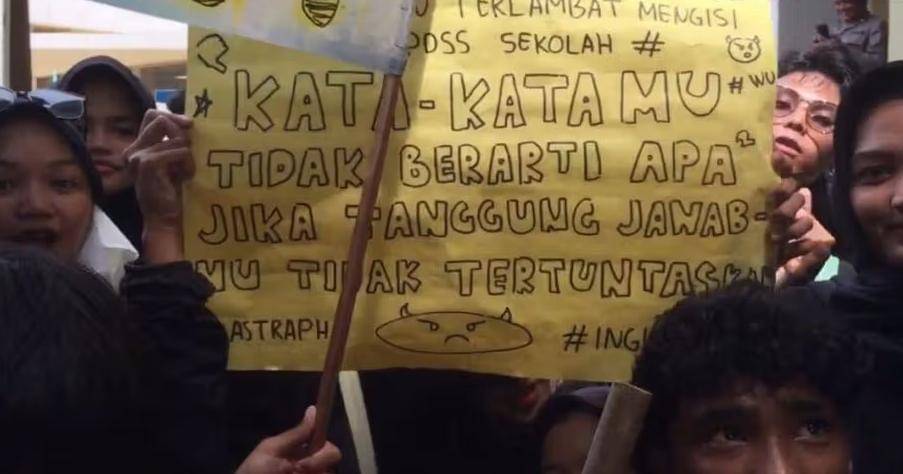 TERLAMBAT MENGISI
PDSS SEKOLAH #
KATA-KATA MU #WU
TIDAK BERARTI APA²
JIKA TANGGUNG JAWAB-
MU TIDAK TERTUNTASKAN
ASTRAPH
#INGI